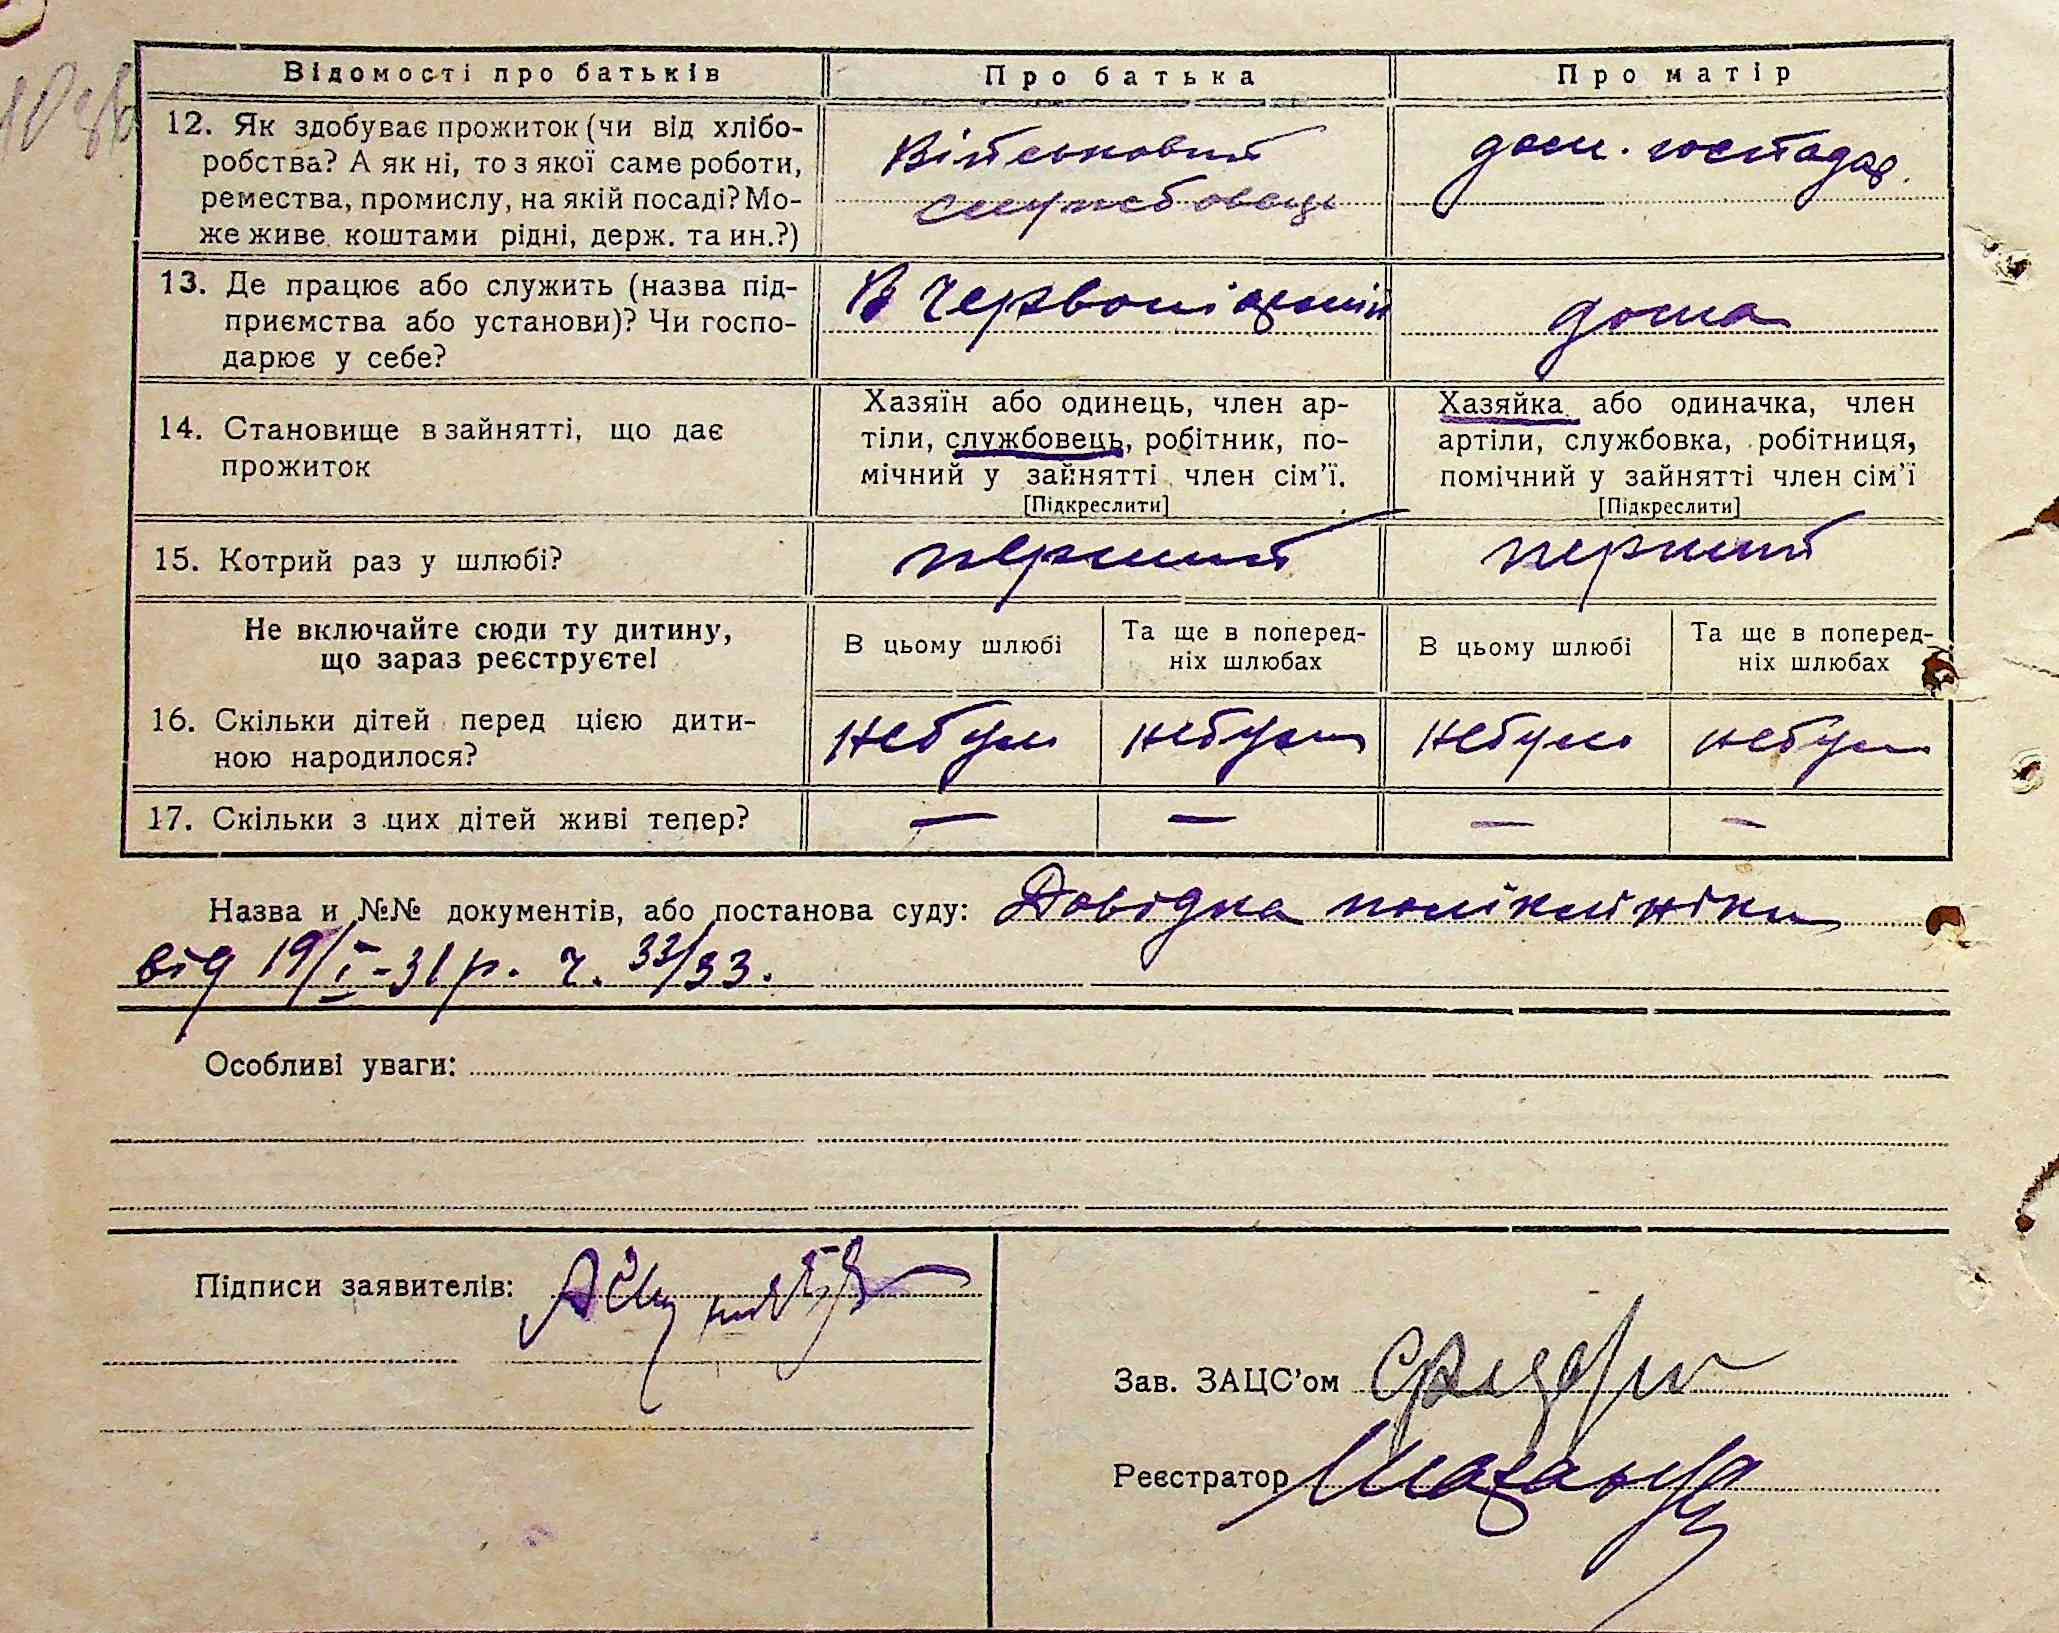 Відомості про батьків Про батька Про матір
12. Як здобуває прожиток (чи від хлібо-
робства? А як ні, то з якої саме роботи,
ремества, промислу, на якій посаді? Мо-
же живе коштами рідні, держ. та ин.?)
Військовий
службовець
дом. господар.
13. Де працює або служить (назва під-
приємства або установи)? Чи госпо-
дарює у себе?
В Червоній армії
дома
14. Становище в зайнятті, що дає
прожиток
Хазяїн або одинець, член ар-
тіли, службовець, робітник, по-
мічний у зайнятті член сім’ї.
[Підкреслити]
Хазяйка або одиначка, член
артіли, службовка, робітниця,
помічний у зайнятті член сім’ї
[Підкреслити]
15. Котрий раз у шлюбі? перший перший
Не включайте сюди ту дитину,
що зараз реєструєте!
В цьому шлюбі
Та ще в поперед-
ніх шлюбах
В цьому шлюбі
Та ще в поперед-
ніх шлюбах
16. Скільки дітей перед цією дити-
ною народилося?
небуло небуло небуло небуло
17. Скільки з цих дітей живі тепер? — — — —
Назва и №№ документів, або постанова суду: Довідка поліклініки
від 19/I-31 р. ч. 33/33.
Особливі уваги:
Підписи заявителів:
Зав. ЗАЦС’ом
Реєстратор